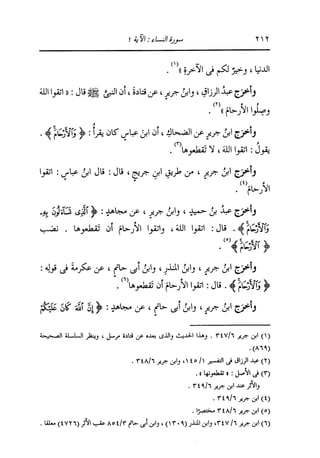 ٢١٢ سورة النساء : الآية ١
الدنيا ، وخيرٌ لكم فى الآخرةِ »(١) .
وأخرَج عبدُ الرزاقِ ، وابنُ جريرٍ ، عن قتادةَ ، أن النبىَّ ﷺ قال : « اتقوا اللهَ
وصِلُوا الأرحامَ »(٢) .
وأخرَج ابنُ جريرٍ عن الضحاكِ ، أن ابنَ عباسٍ كان يقرأُ : ﴿ وَٱلْأَرْحَامَ ﴾ .
يقولُ : اتقوا اللهَ ، لا تقطعوها(٣) .
وأخرَج ابنُ جريرٍ ، من طريقِ ابنِ جريجٍ ، قال : قال ابنُ عباسٍ : اتقوا
الأرحامَ(٤) .
وأخرَج عبدُ بنُ حميدٍ ، وابنُ جريرٍ ، عن مجاهدٍ : ﴿ ٱلَّذِى تَسَآءَلُونَ بِهِۦ
وَٱلْأَرْحَامَ ﴾ . قال : اتقوا اللهَ ، واتقوا الأرحامَ أن تقطعوها . نصَب
﴿ وَٱلْأَرْحَامَ ﴾(٥) .
وأخرَج ابنُ جريرٍ ، وابنُ المنذرِ ، وابنُ أبى حاتمٍ ، عن عكرمةَ فى قولِه :
﴿ وَٱلْأَرْحَامَ ﴾ . قال : اتقوا الأرحامَ أن تقطعوها(٦) .
وأخرَج ابنُ جريرٍ ، وابنُ أبى حاتمٍ ، عن مجاهدٍ : ﴿ إِنَّ ٱللَّهَ كَانَ عَلَيْكُمْ
(١) ابن جرير ٣٤٧/٦ . وهذا الحديث والذى بعده عن قتادة مرسل ، وينظر السلسلة الصحيحة
(٨٦٩) .
(٢) عبد الرزاق فى التفسير ١٤٥/١ ، وابن جرير ٣٤٨/٦ .
(٣) فى الأصل : « تقطعونها » .
والأثر عند ابن جرير ٣٤٩/٦ .
(٤) ابن جرير ٣٤٩/٦ .
(٥) ابن جرير ٣٤٨/٦ مختصرًا .
(٦) ابن جرير ٣٤٧/٦ ، وابن المنذر (١٣٠٩) ، وابن أبى حاتم ٨٥٤/٣ عقب الأثر (٤٧٢٦) معلقا .